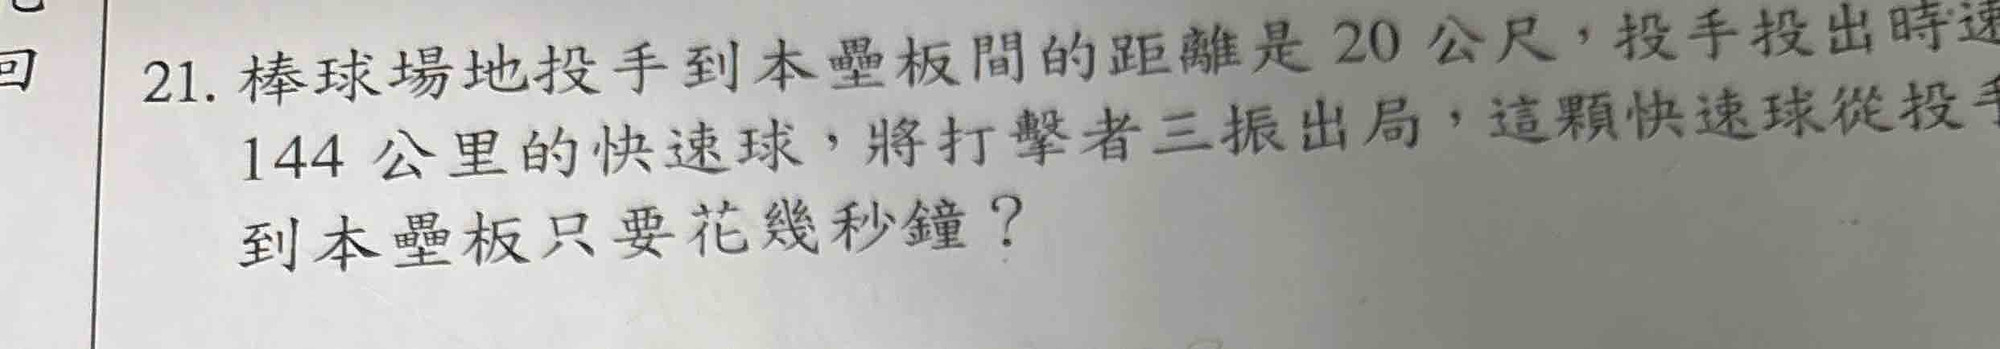 回
21. 棒球場地投手到本壘板間的距離是 20 公尺，投手投出時速
144 公里的快速球，將打擊者三振出局，這顆快速球從投手
到本壘板只要花幾秒鐘？